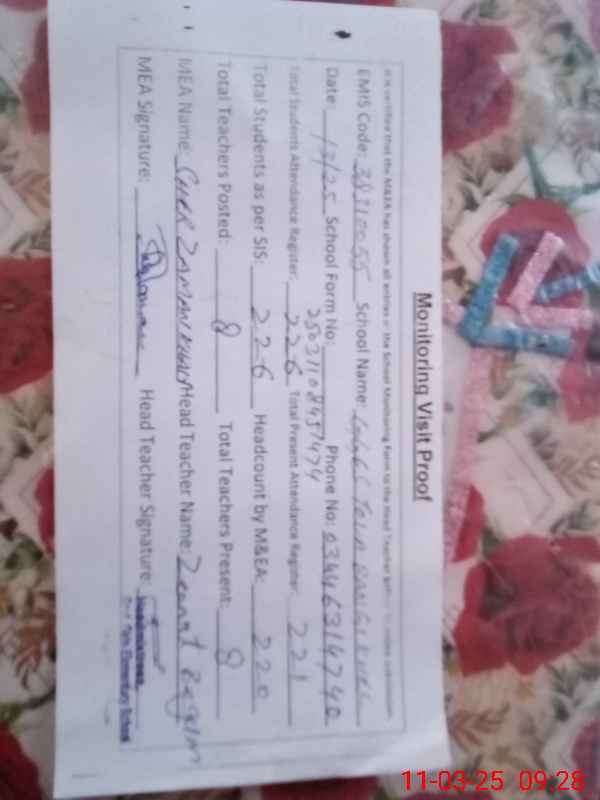 Monitoring Visit Proof
It is certified that the M&EA has shown all entries of the School Monitoring Form to the Head Teacher
EMIS Code: 38310055 School Name:
Date /3/25 School Form No: 25031108457474 Phone No: 03446314740
Total Students Attendance Register: 226 Total Present Attendance Register: 221
Total Students as per SIS: 226 Headcount by M&EA: 220
Total Teachers Posted: 8 Total Teachers Present: 8
MEA Name: SHER ZAMAN KHAN Head Teacher Name: Zeenat Begum
MEA Signature: Head Teacher Signature:
Elementary School
11-03-25 09:28